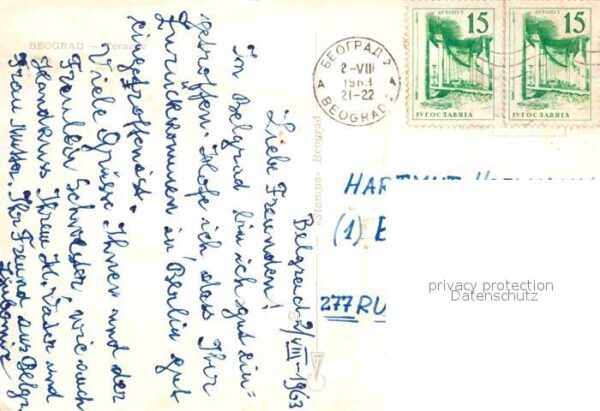 BEOGRAD — Terazije
Belgrad 2/VIII-1963
Liebe Freunden!
In Belgrad bin ich gut ein=
getroffen. Hofe ich, das Ihr
Zurückkommen in Berlin gut
eingetroffenist.
Viele Grüsse Ihnen und der
Fräulein Schwester, wie auch
Handkuss Ihrem H. Vater und
Frau Mutter. Ihr Freund aus Belgr.
Ljubomir
«Stampa» Beograd
БЕОГРАД 2
2-VIII
1963
21-22
A A
BEOGRAD
АУТОПУТ 15
ЈУГОСЛАВИЈА
АУТОПУТ 15
ЈУГОСЛАВИЈА
HARTMUT
(1) B
277 RU
privacy protection
Datenschutz